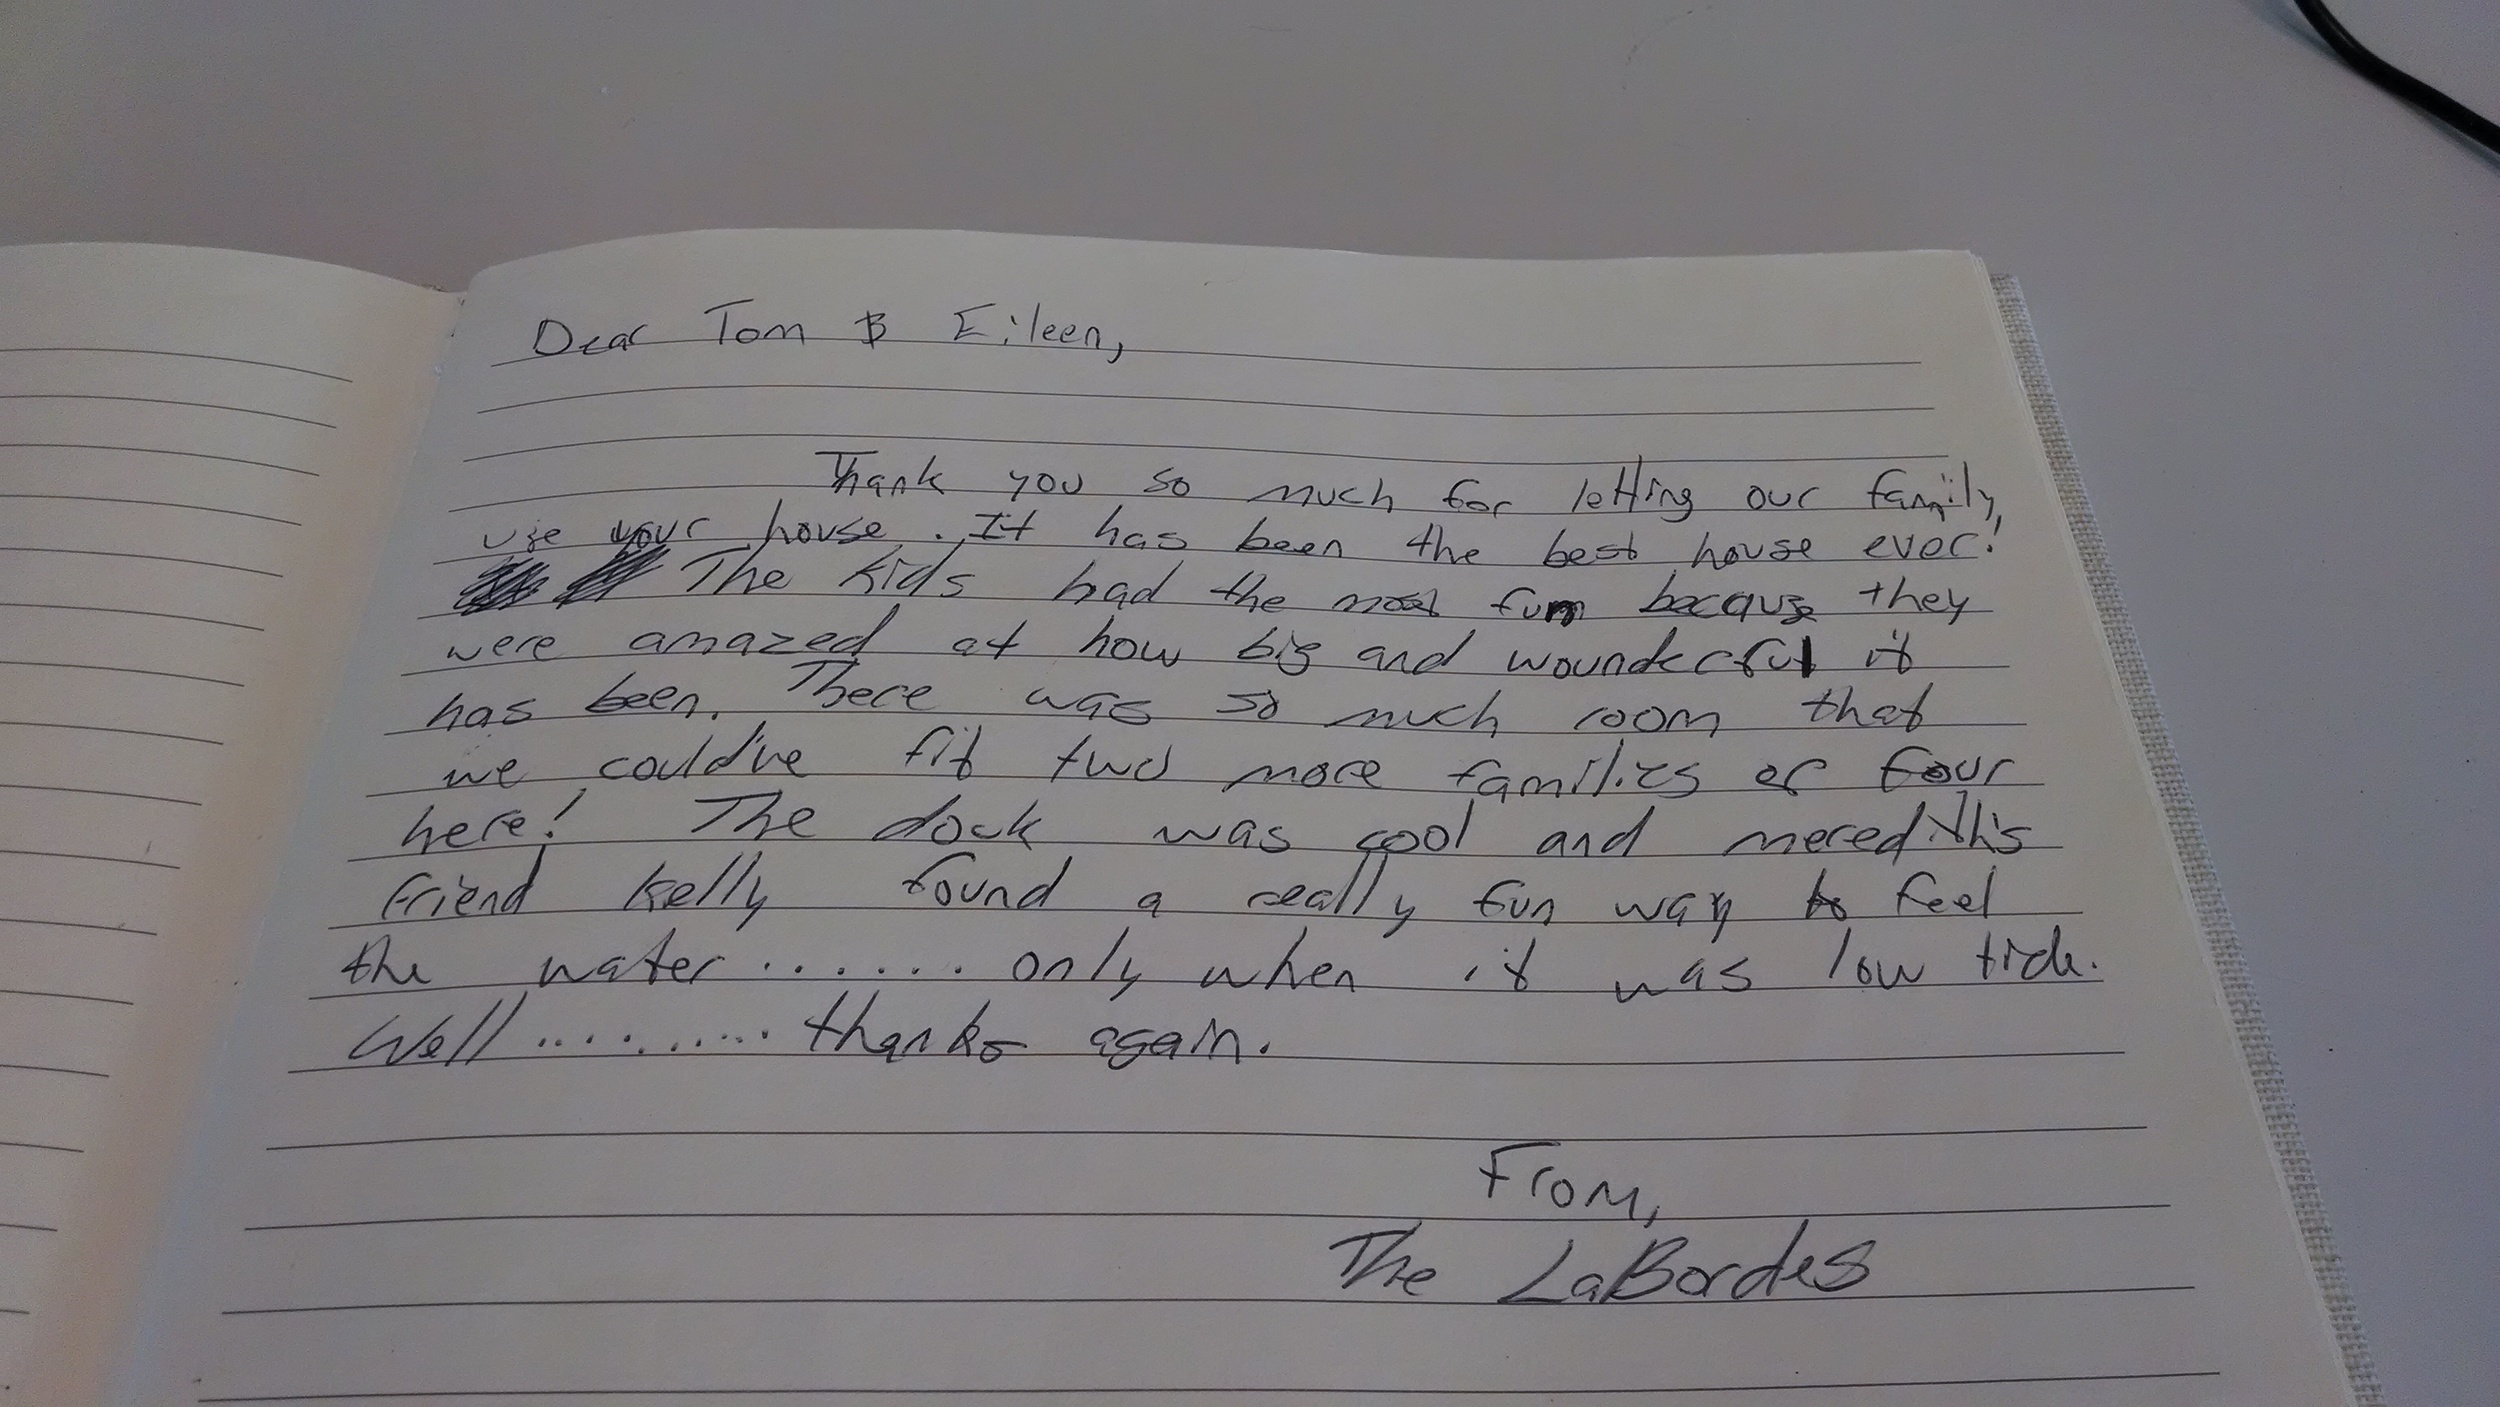 Dear Tom & Eileen,
Thank you so much for letting our family,
use your house. It has been the best house ever!
The kids had the most fun because they
were amazed at how big and wounderful it
has been. There was so much room that
we could've fit two more families or four
here! The dock was cool and meredith's
friend kelly found a really fun way to feel
the water ...... only when it was low tide.
Well ......... thanks again.
From,
The LaBordes